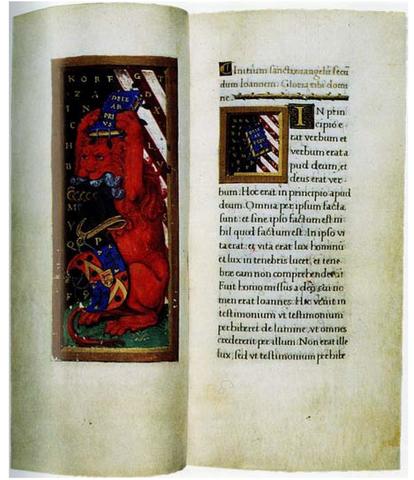 K O R F G T
DELE
AR
PRI
VS
Initium sancti evangelii secu
dum Ioannem. Gloria tibi domi
ne
IN prin
cipio e
rat verbum et
verbum erat a
pud deum, et
deus erat ver
bum. Hoc erat in principio apud
deum. Omnia per ipsum facta
sunt: et sine ipso factum est ni
hil quod factum est. In ipso vi
ta erat, et vita erat lux hominū
et lux in tenebris lucet, et tene
brae eam non comprehenderūt
Fuit homo missus a deo, cui no
men erat Ioannes. Hic venit in
testimonium vt testimonium
perhiberet de lumine, vt omnes
crederent per illum. Non erat ille
lux, sed vt testimonium perhibe